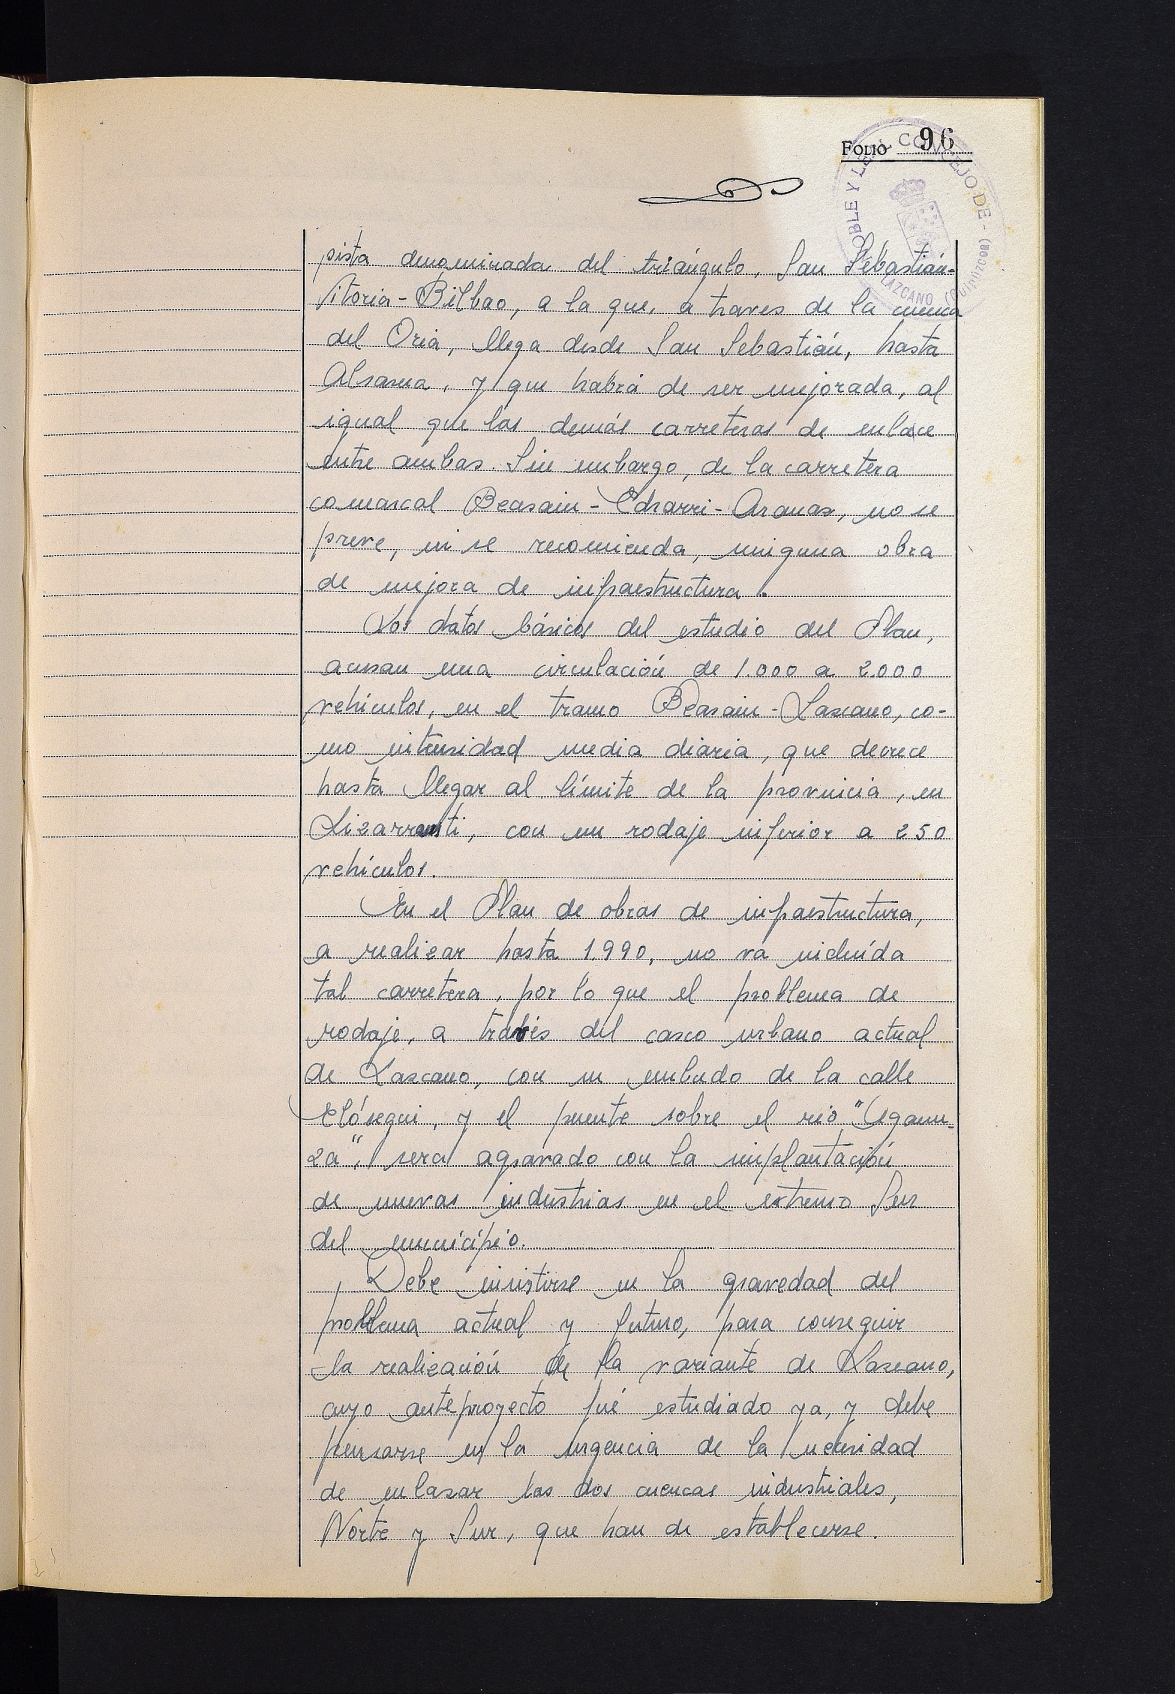 FOLIO 96
NOBLE Y LEAL CONCEJO DE - LAZCANO (Guipúzcoa)
pista denominada del triángulo, San Sebastián-
Vitoria-Bilbao, a la que, a traves de la cuenca
del Oria, llega desde San Sebastián, hasta
Alsasua, y que habrá de ser mejorada, al
igual que las demás carreteras de enlace
entre ambas. Sin embargo, de la carretera
comarcal Beasain-Echarri-Aranaz, no se
preve, ni se recomienda, ninguna obra
de mejora de infraestructura.
Los datos básicos del estudio del Plan,
acusan una circulación de 1.000 a 2.000
vehículos, en el tramo Beasain-Lazcano, co-
mo intensidad media diaria, que decrece
hasta llegar al límite de la provincia, en
Lizarrusti, con un rodaje inferior a 250
vehículos.
En el Plan de obras de infraestructura,
a realizar hasta 1.990, no va incluída
tal carretera, por lo que el problema de
rodaje, a través del casco urbano actual
de Lazcano, con un embudo de la calle
Elósegui, y el puente sobre el rio "Agaun-
za", será agravado con la implantación
de nuevas industrias en el extremo Sur
del município.
Debe insistirse en la gravedad del
problema actual y futuro, para conseguir
la realización de la variante de Lazcano,
cuyo anteproyecto fué estudiado ya, y debe
pensarse en la urgencia de la necesidad
de enlazar las dos cuencas industriales,
Norte y Sur, que han de establecerse.